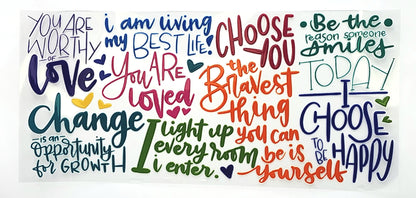 YOU ARE
WORTHY
OF
Love
i am living
my BEST LIFE!
CHOOSE
YOU
Be the
reason someone
smiles
TODAY
You ARE
loved
the
Bravest
thing
you can
be is
yourself
I
CHOOSE
TO BE
HAPPY
change
IS AN
opportunity
for GROWTH
I light up
every room
i enter.